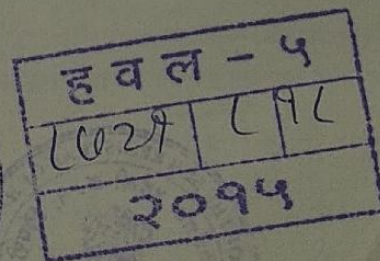 ह व ल - ५
८७२१ | ८ | १८
२०१५